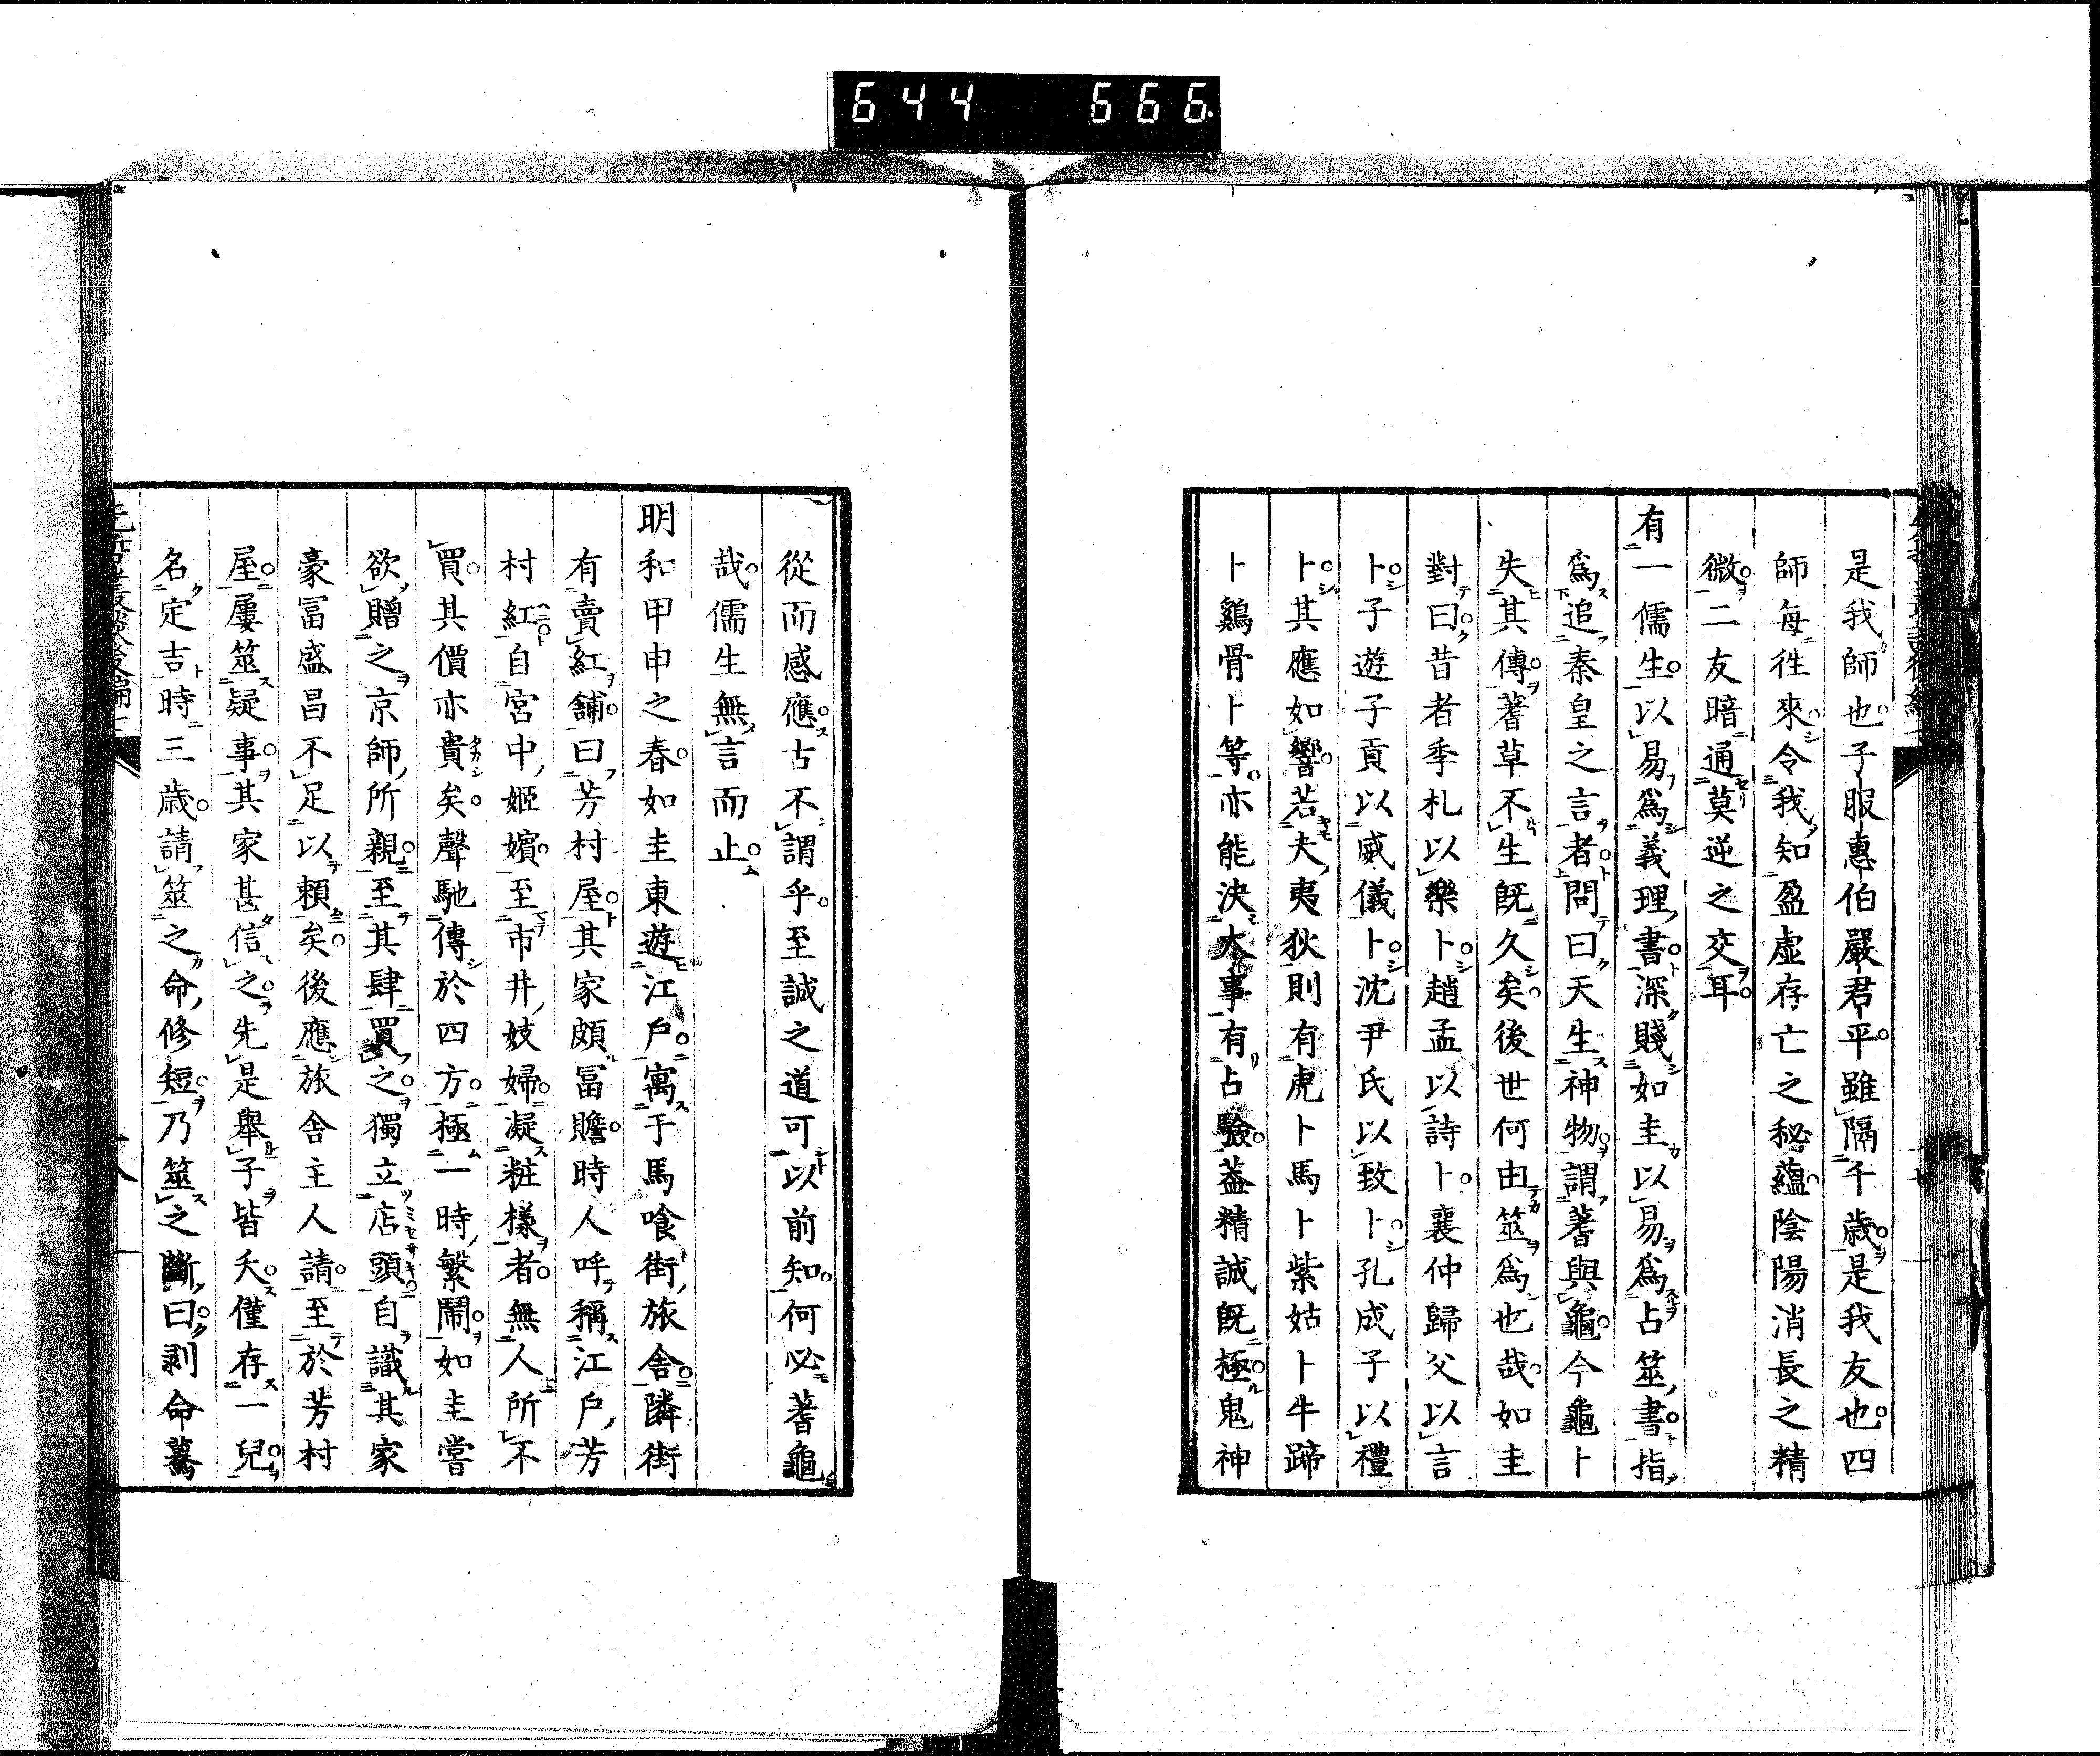 644 666
是我師也子服惠伯嚴君平雖隔千歳是我友也四
師毎徃來令我知盈虚存亡之秘蘊陰陽消長之精
微二友暗通莫逆之交耳
有一儒生以易爲義理書深賤如圭以易爲占筮書指
爲追秦皇之言者問曰天生神物謂蓍與龜今龜卜
失其傳蓍草不生既久矣後世何由筮爲也哉如圭
對曰昔者季札以樂卜趙孟以詩卜襄仲歸父以言
卜子遊子貢以威儀卜沈尹氏以致卜孔成子以禮
卜其應如響若夫夷狄則有虎卜馬卜紫姑卜牛蹄
卜鷄骨卜等亦能決大事有占驗葢精誠既極鬼神
從而感應古不謂乎至誠之道可以前知何必蓍龜
哉儒生無言而止
明和甲申之春如圭東遊江戸寓于馬喰街旅舎隣街
有賣紅舗曰芳村屋其家頗冨贍時人呼稱江戸芳
村紅自宮中姫嬪至市井妓婦凝粧樣者無人所不
買其價亦貴矣聲馳傳於四方極一時繁鬧如圭嘗
欲贈之京師所親至其肆買之獨立店頭自識其家
豪冨盛昌不足以頼矣後應旅舎主人請至於芳村
屋屢筮疑事其家甚信之先是舉子皆夭僅存一兒
名定吉時三歳請筮之命修短乃筮之斷曰剥命驀